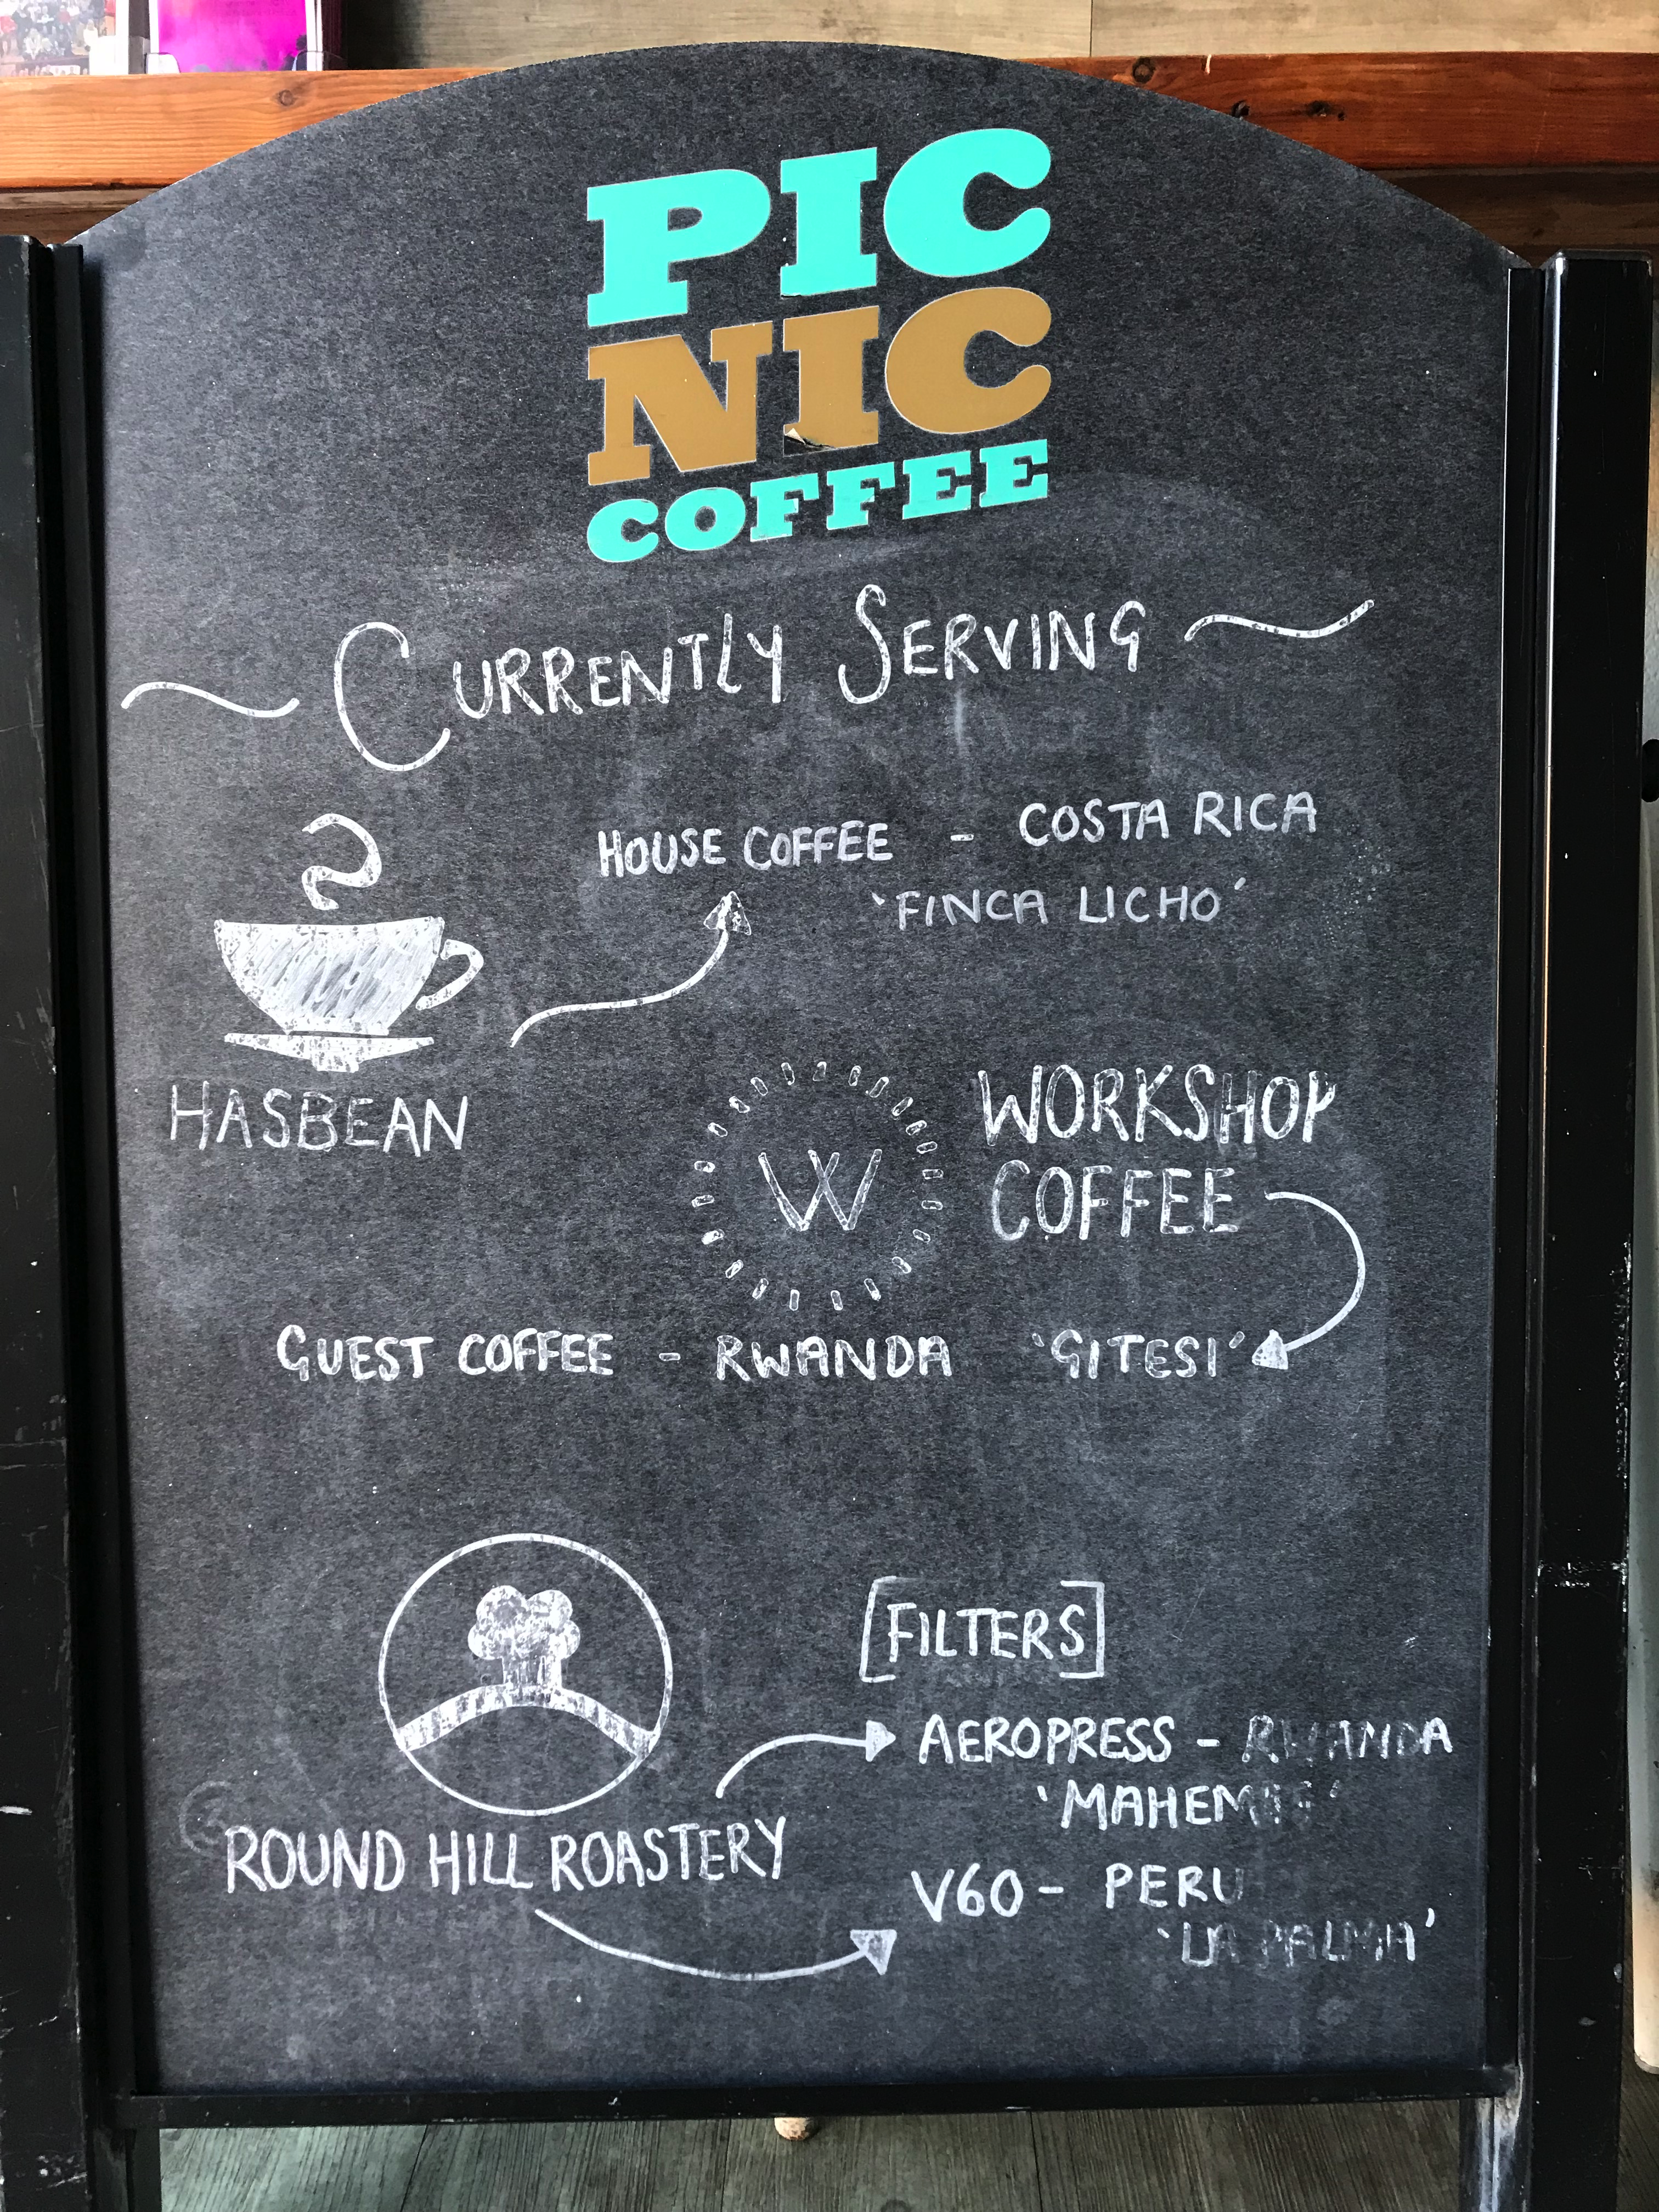 PIC
NIC
COFFEE
CURRENTLY SERVING
HOUSE COFFEE - COSTA RICA
'FINCA LICHO'
HASBEAN
W
WORKSHOP
COFFEE
GUEST COFFEE - RWANDA 'GITESI'
[FILTERS]
AEROPRESS - RWANDA
ROUND HILL ROASTERY
V60 - PERU
'LA PALMA'